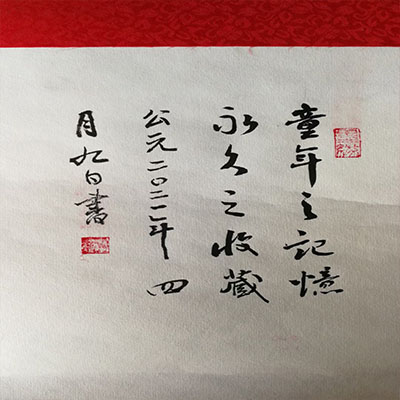 童年之記憶
永久之收藏
公元二〇二一年四
月九日書